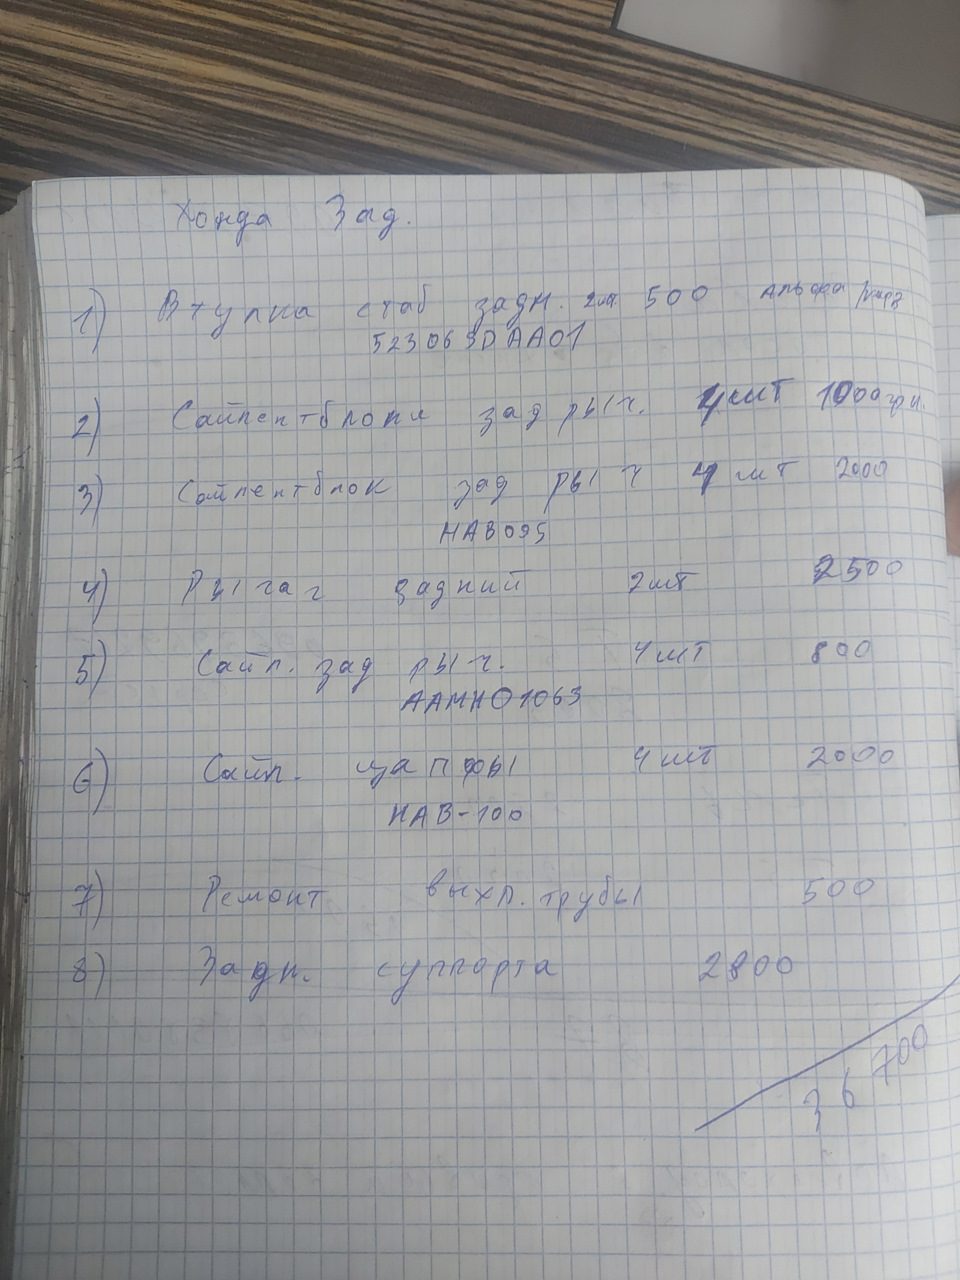 Хонда Зад.
1) Втулка стаб задн. 2шт 500 Альфа
523063DAA01
2) Сайлентблоки зад рыч. 4шт 1000грн.
3) Сайлентблок зад рыч 4 шт 2000
HAB095
4) Рычаг задний 2шт 2500
5) Сайл. зад рыч. 4шт 800
AAMHO1063
6) Сайл. цапфы 4шт 2000
HAB-100
7) Ремонт выхл. трубы 500
8) Задн. суппорта 2800
36 700